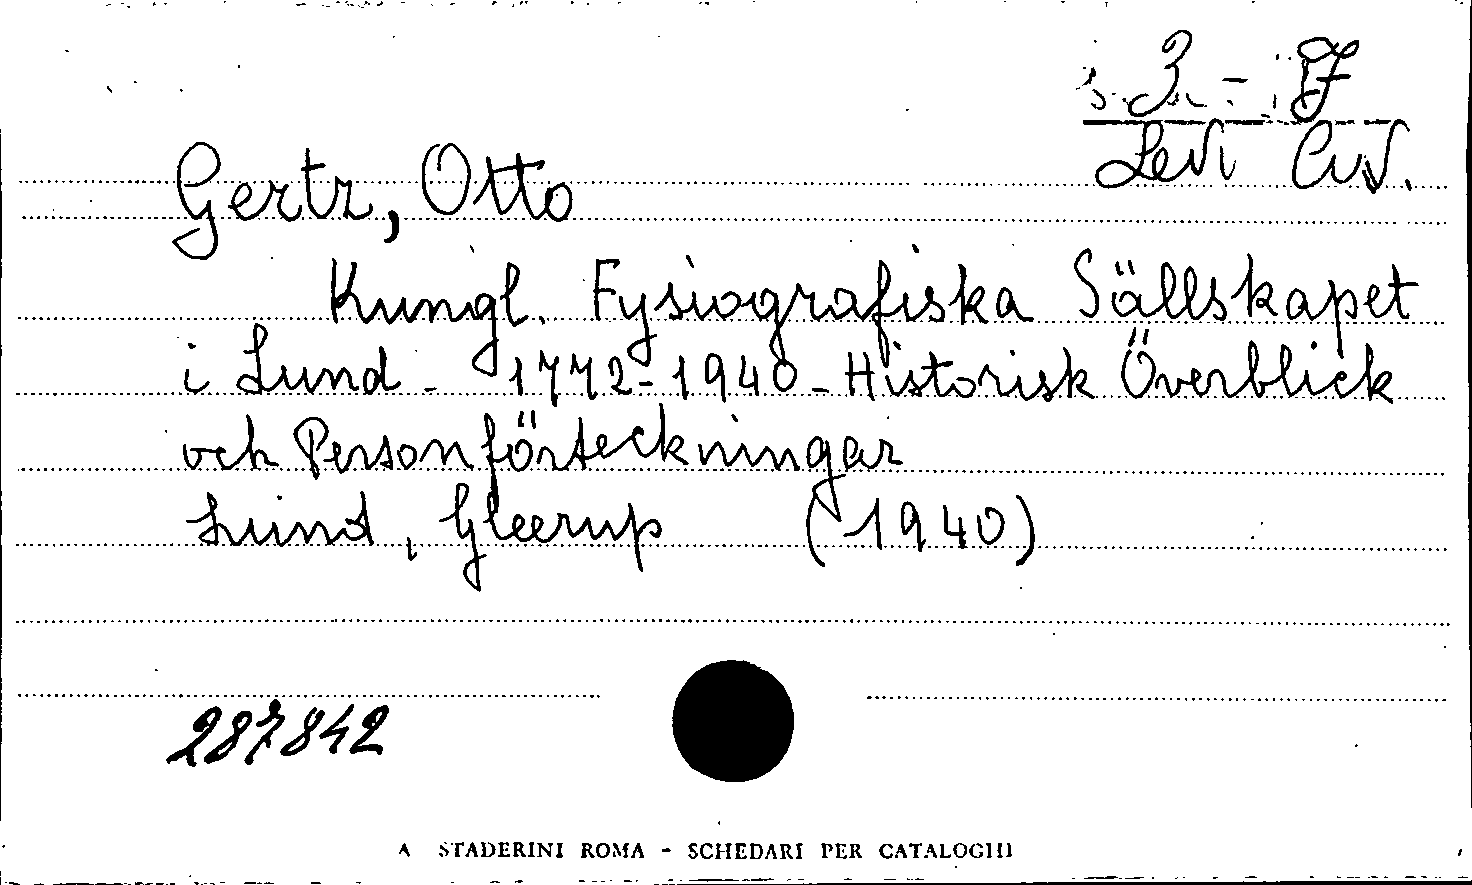 3 - F
Levi Civ.
Gertz, Otto
Kungl. Fysiografiska Sällskapet
i Lund - 1772-1940 - Historisk Överblick
och Personförteckningar
Lund, Gleerup (1940)
287842
A STADERINI ROMA - SCHEDARI PER CATALOGHI